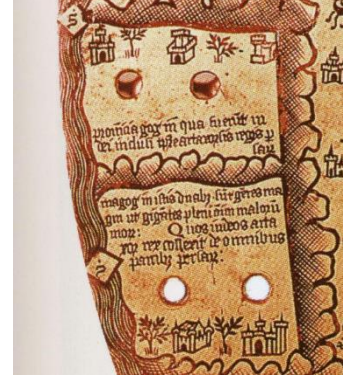 prouīcia gog in qua fuerūt iu
dei inclusi tp̄e artaxorsis regis p
saꝝ
magog in istis duabꝰ sūt gētes ma
gni ut gigātes pleni oīm malorū
moꝝ: Quos iudeos arta
xor rex collexit de omnibus
partibꝰ persaꝝ: